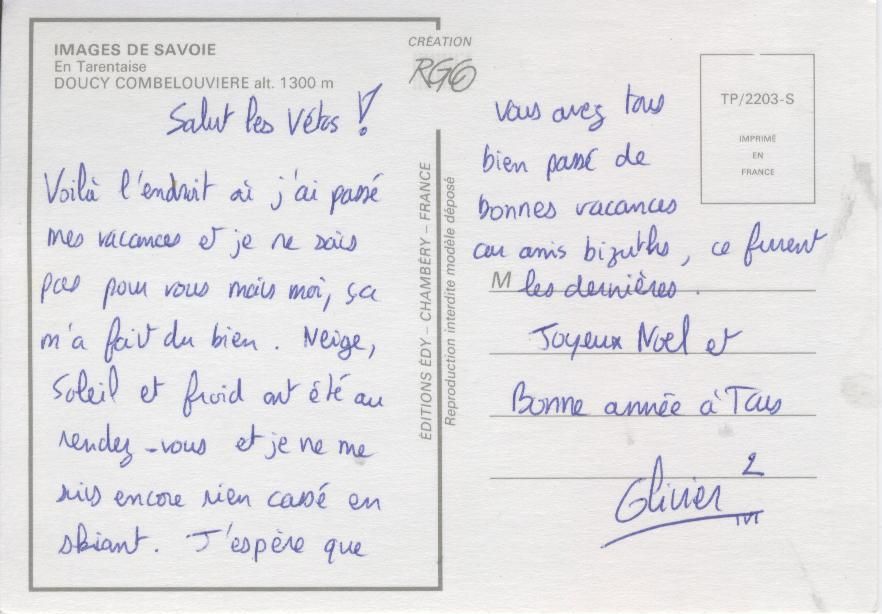 IMAGES DE SAVOIE
En Tarentaise
DOUCY COMBELOUVIERE alt. 1300 m
Salut les Vétos !
Voilà l'endroit où j'ai passé
mes vacances et je ne sais
pas pour vous mais moi, ça
m'a fait du bien. Neige,
Soleil et froid ont été au
rendez-vous et je ne me
suis encore rien cassé en
skiant. J'espère que
CRÉATION
RGO
ÉDITIONS ÉDY – CHAMBÉRY – FRANCE
Reproduction interdite modèle déposé
TP/2203-S
IMPRIMÉ
EN
FRANCE
vous avez tous
bien passé de
bonnes vacances
car amis bizuths, ce furent
M les dernières.
Joyeux Noel et
Bonne année à Tous
Olivier 2